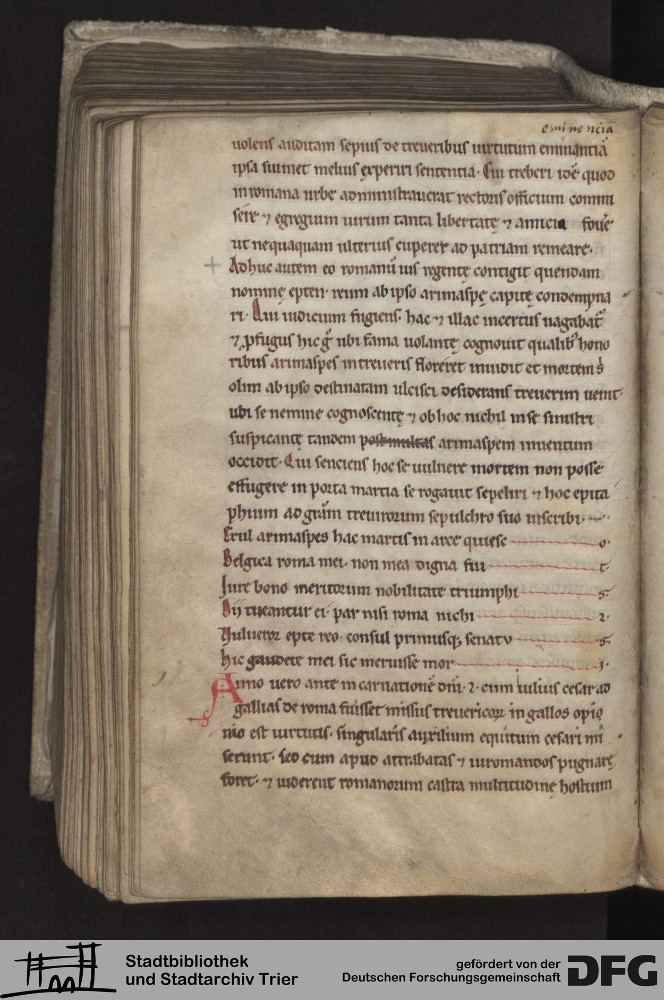 eminencia
uolens auditam sepius de treueribus uirtutum eminantiā
ipsa suimet melius experiri sententia. Cui treberi idē quod
in romana urbe administrauerat rectoris officium commi
sere ⁊ egregium uirum tanta libertatę ⁊ amicia fouē
ut nequaquam ulterius cuperet ad patriam remeare.
Adhuc autem eo romanū ius regentę contigit quendam
nominę epten. reum ab ipso arimaspę capitę condempna
ri. Qui iudicium fugiens. hac ⁊ illac incertus uagabat᷑
⁊ ꝓfugus hic g̊ ubi fama uolantę cognouit qualibꝰ hono
ribus arimaspes in treueris floreret inuidit et mortem s̓
olim ab ipso destinatam ulcisci desiderans treuerim uenit.
ubi se nemine cognoscentę ⁊ ob hoc nichil in se sinistri
suspicantę tandem post multas arimaspem inuentum
occidit. Qui senciens hoc se uulnere mortem non posse
effugere in porta martia se rogauit sepeliri ⁊ hoc epita
phium ad grām treuirorum sepulchro suo inscribi.
Erul arimaspes hac martis in arce quiesc o.
Belgica roma mei. non mea digna fui t.
Iure bono meritorum nobilitate triumphi s.
Dij tueantur ei. par nisi roma nichi ꝛ.
Vulneror epte reo. consul primusq; senatv s.
hic gaudete mei sic meruisse mor j.
Anno uero ante incarnationē dn̄i. ꝛ. cum iulius cesar ad
gallias de roma fuisset missus treuericoꝝ in gallos opiō
nio est uirtutis. singularis auxilium equitum cesari mi
serunt. sed cum apud attrabatas ⁊ uiromandos pugnarę
foret. ⁊ uiderent romanorum castra multitudinę hostium
Stadtbibliothek
und Stadtarchiv Trier
gefördert von der
Deutschen Forschungsgemeinschaft
DFG